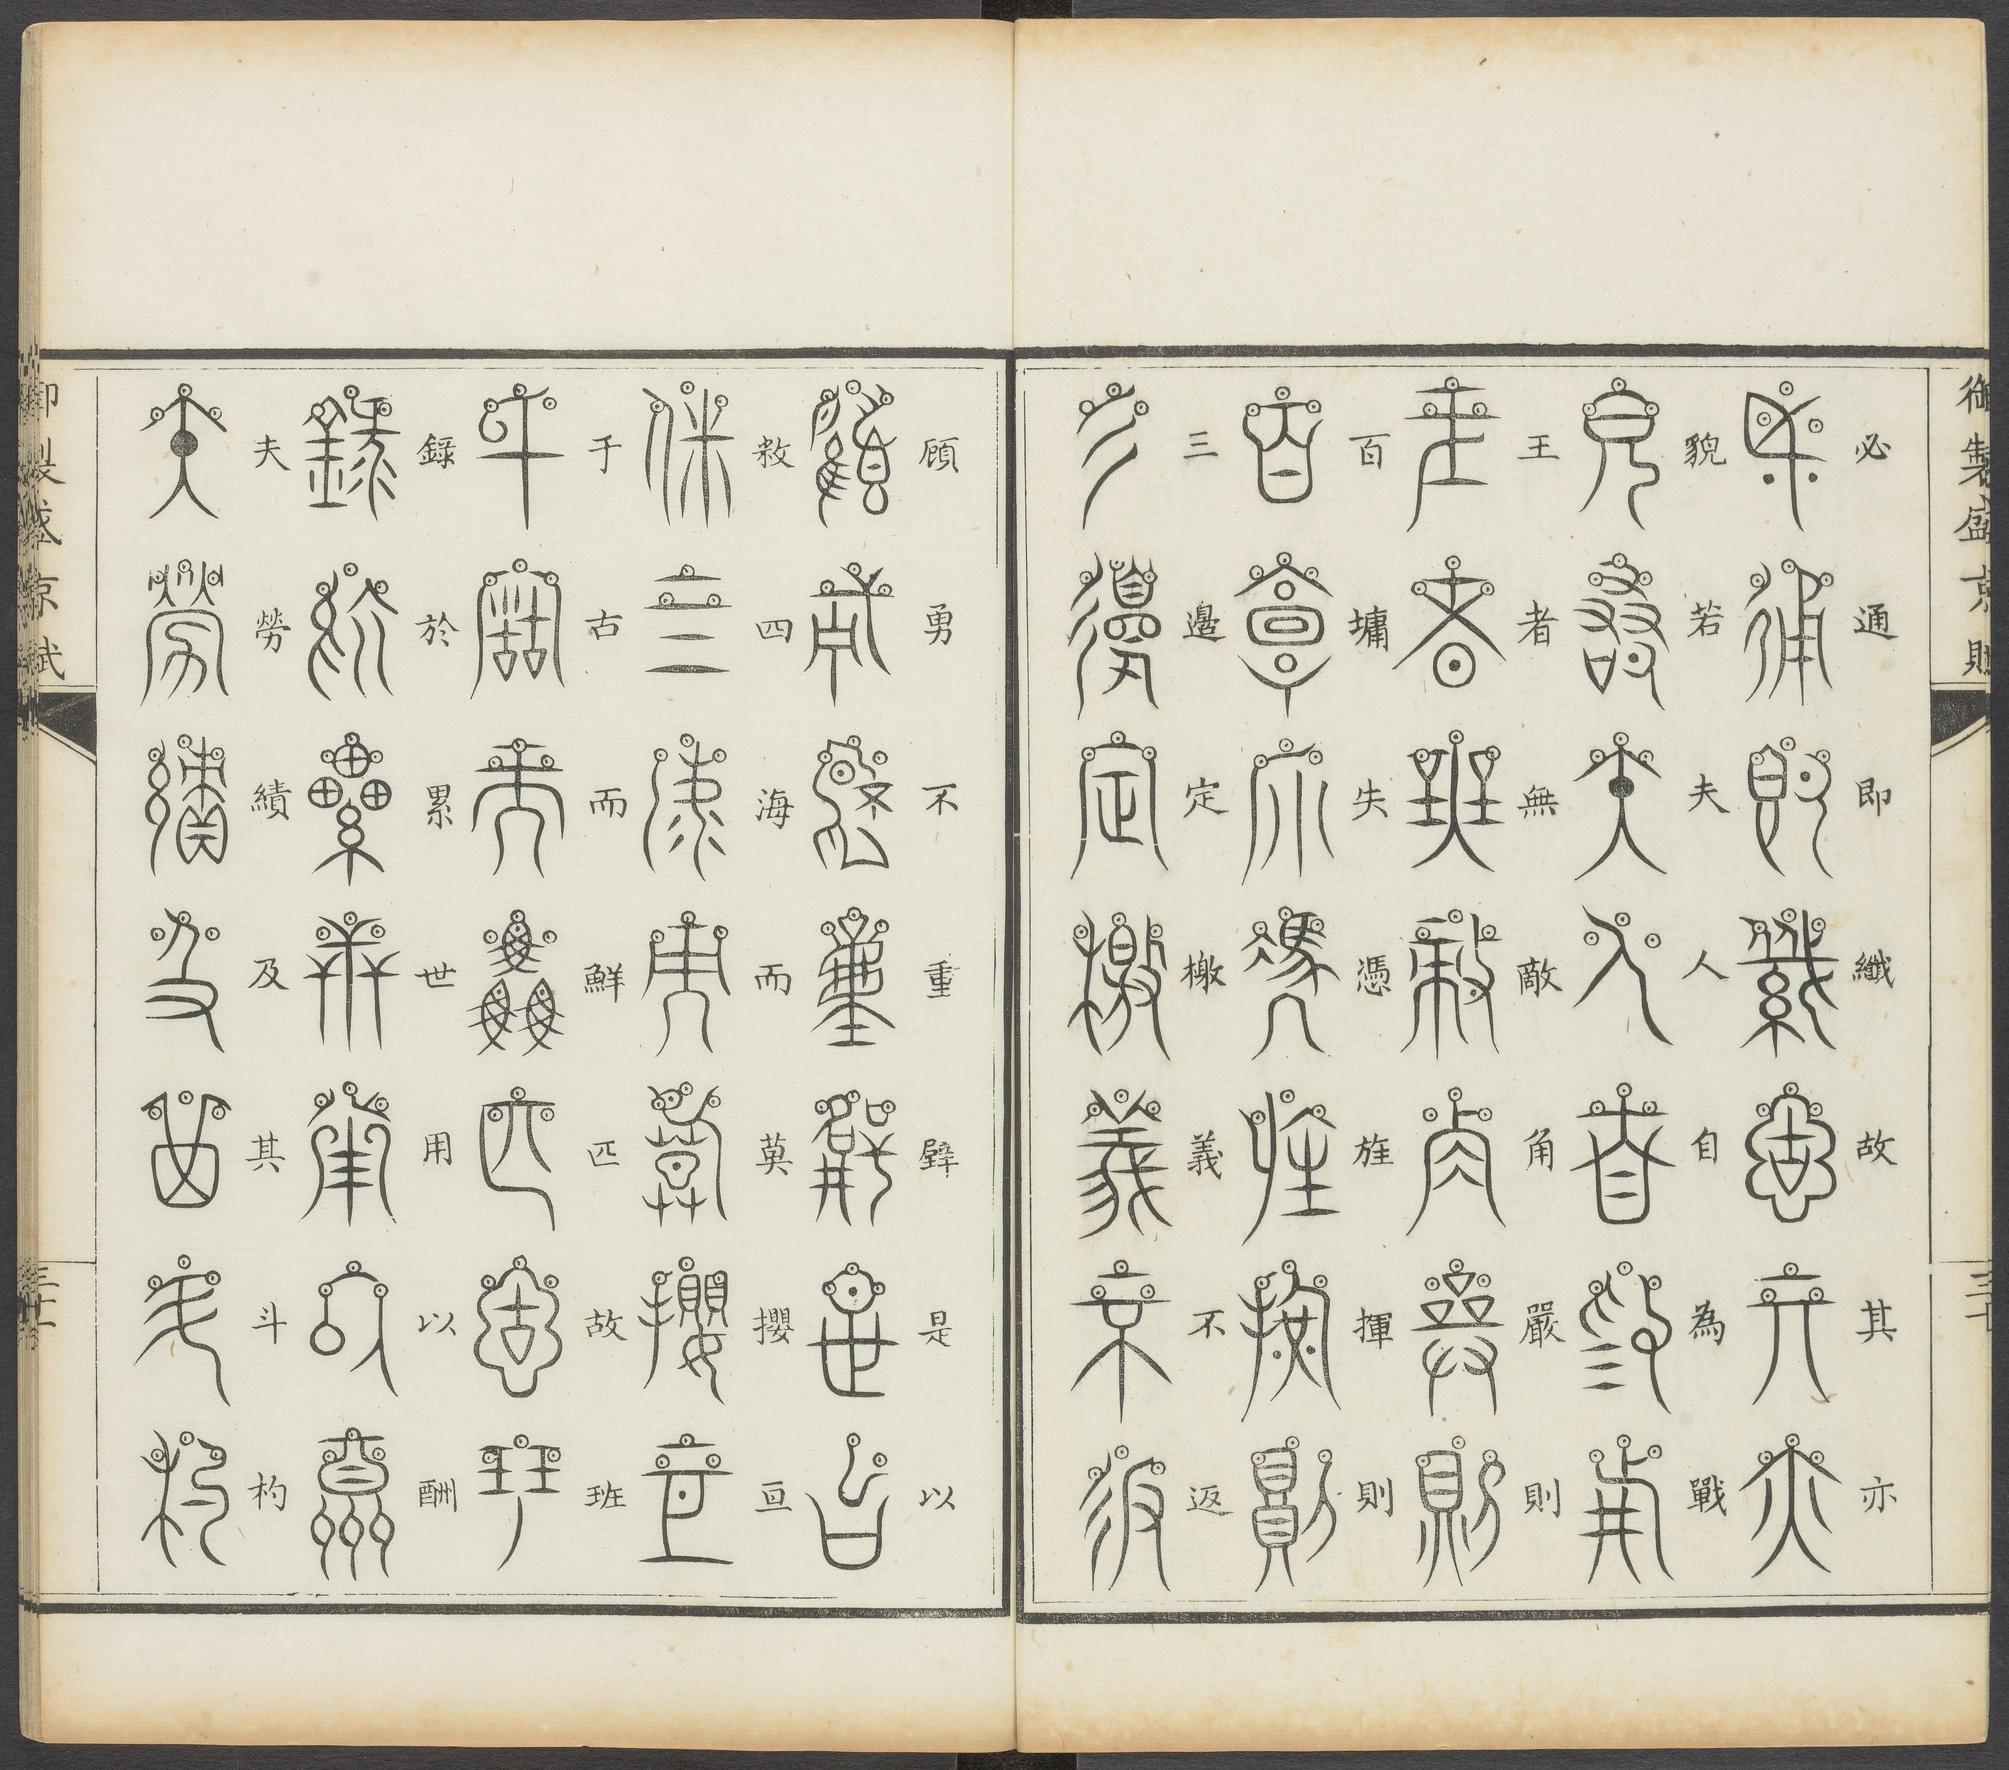 御製盛京賦
必通即纖故其亦
貌若夫人自為戰
王者無敵角嚴則
百墉失憑旌揮則
三邊定檄義不返
三十
顧勇不重臂是以
敉四海而莫攖亘
于古而鮮匹故班
錄於累世用以酬
夫勞績及其斗杓
御製盛京賦